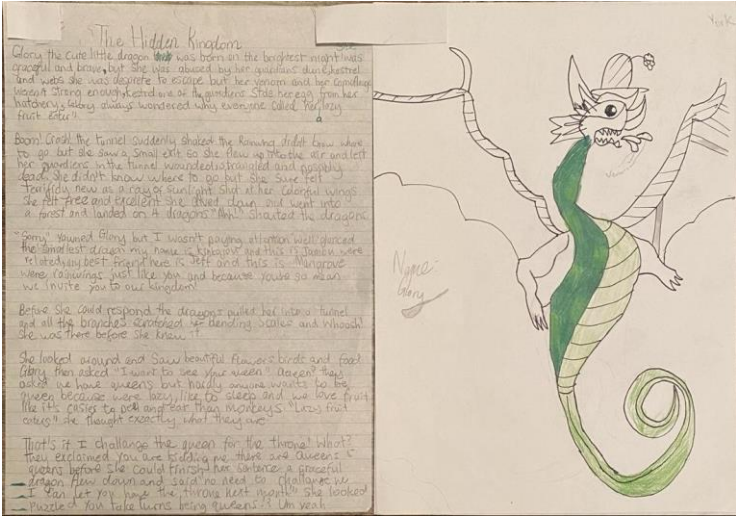 The Hidden Kingdom
Glory the cute little dragon was born on the brightest night was
graceful and brave, but she was abused by her guardians dune, kestrel
and webs she was desprete to escape but her venom and her camoflage
weren't strong enough, kestrel one of the gurdiens stole her egg from her
hatchery, Glory always wondered why everyone called her lazy
fruit eater"
Boom! Crash! the tunnel suddenly shaked the Rainwing didnt know where
to go but she saw a small exit so she flew up into the air and left
her guardiens in the tunnel wounded, strangled and possibly
dead. She didn't know where to go but she sure felt
new as a ray of sunlight shot at her colorful wings
she felt free and excellent she dived down and went into
a forest and landed on 4 dragons "Ahh!" Shouted the dragons
"Sorry" Glory but I wasn't paying attention well
the smallest dragon my name is kinkajou and this is Jambu were
related very best friend here is Jeff and this is Mangrove
were rainwings just like you and because youre so mean
we invite you to our kingdom!
Before she could respond the dragons pulled her into a tunnel
and all the branches scratched her bending scales and whoosh!
She was there before she knew it
She looked around and saw beautiful flowers birds and food
Glory then asked "I want to see your queen" Queen? they
asked we have queens but hardly anyone wants to be
queen because were lazy, like to sleep and we love fruit
like it's easier to peel and eat than monkeys "Lazy fruit
eaters" she thought exactly what they are
That's it I challange the queen for the throne! What?
they exclaimed you are kidding me there are queens
queens before she could finish her sentence a graceful
dragon flew down and said no need to challange me
I can let you have the throne next month" she looked
puzzled You take turns being queens? Um yeah
York
Name:-
Glory